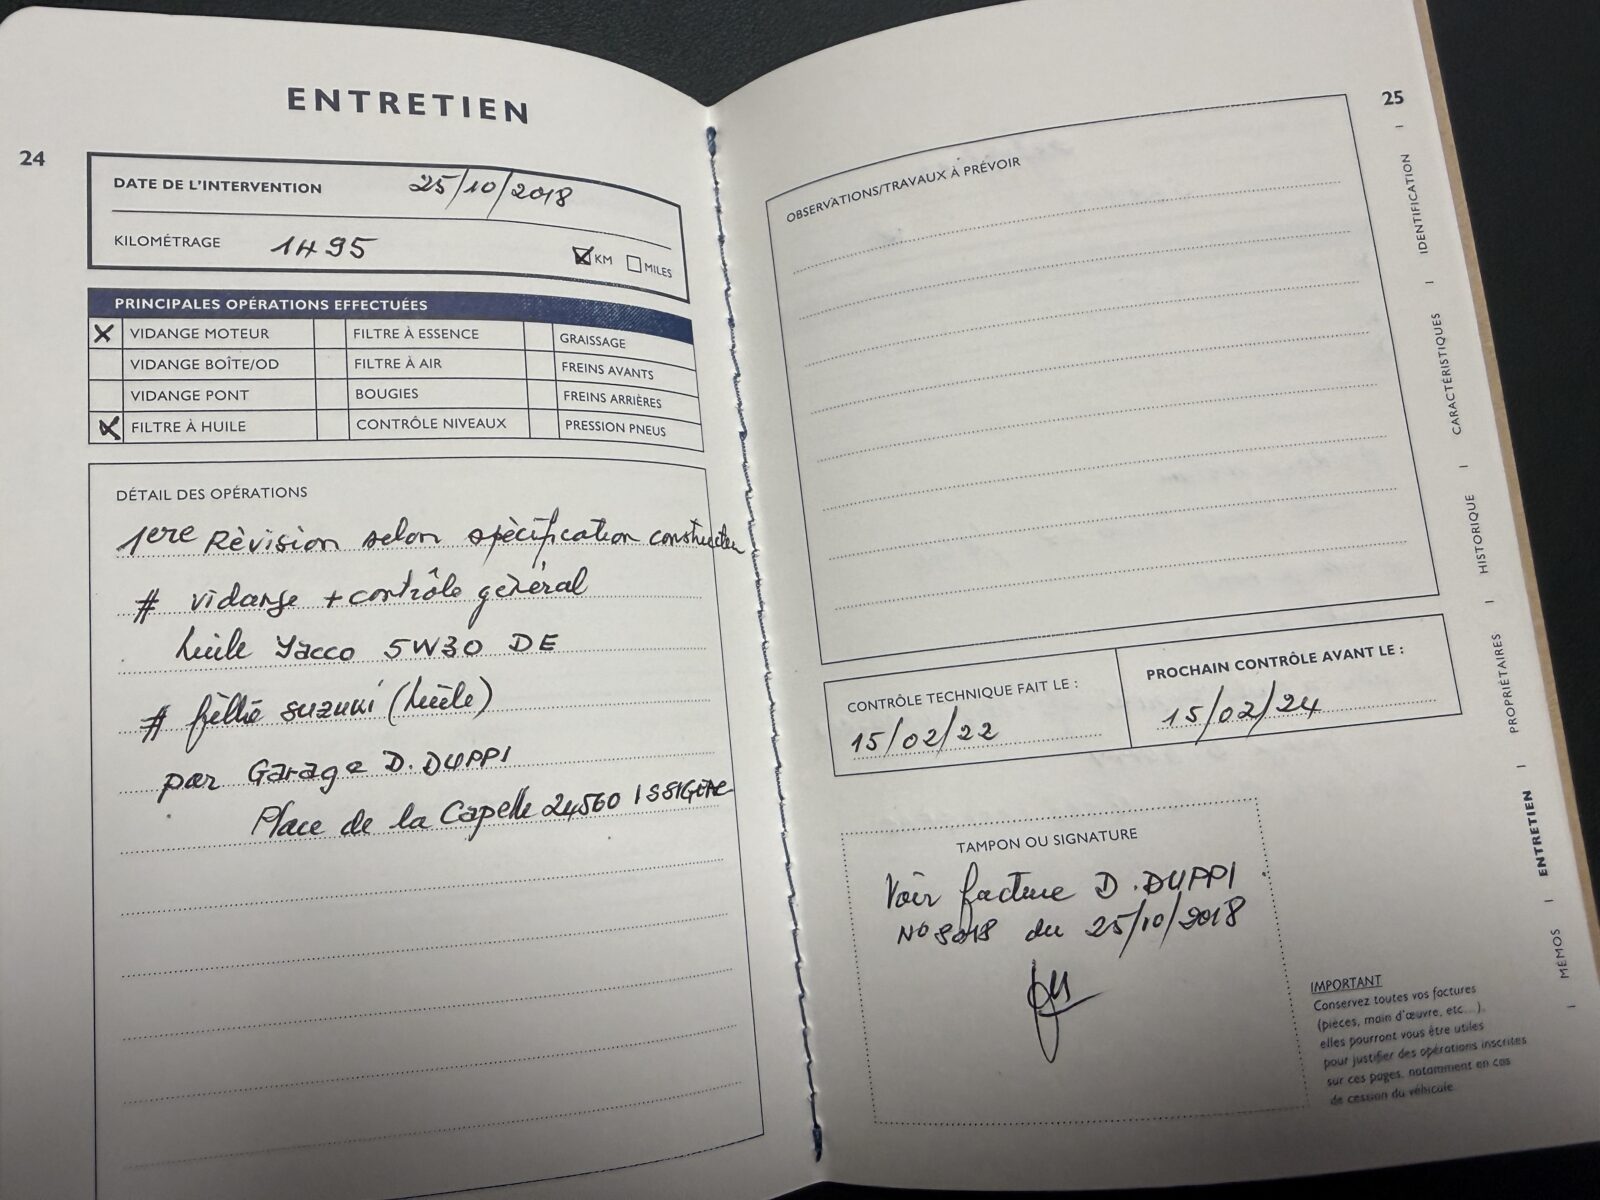 ENTRETIEN
24
DATE DE L'INTERVENTION 25/10/2018
KILOMÉTRAGE 1495 KM MILES
PRINCIPALES OPÉRATIONS EFFECTUÉES
X VIDANGE MOTEUR FILTRE À ESSENCE GRAISSAGE
VIDANGE BOÎTE/OD FILTRE À AIR FREINS AVANTS
VIDANGE PONT BOUGIES FREINS ARRIÈRES
X FILTRE À HUILE CONTRÔLE NIVEAUX PRESSION PNEUS
DÉTAIL DES OPÉRATIONS
1ere Révision selon spécification
# vidange + contrôle général
huile Yacco 5W30 DE
# suzuki (huile)
par Garage D. DUPPI
Place de la Capelle 24560
25
OBSERVATIONS/TRAVAUX À PRÉVOIR
CONTRÔLE TECHNIQUE FAIT LE :
15/02/22
PROCHAIN CONTRÔLE AVANT LE :
15/02/24
TAMPON OU SIGNATURE
Voir facture D. DUPPI
N° du 25/10/2018
IMPORTANT
Conservez toutes vos factures
(pièces, main d'œuvre, etc...),
elles pourront vous être utiles
pour justifier des opérations inscrites
sur ces pages, notamment en cas
de cession du véhicule
IDENTIFICATION
CARACTÉRISTIQUES
HISTORIQUE
PROPRIÉTAIRES
ENTRETIEN
MEMOS